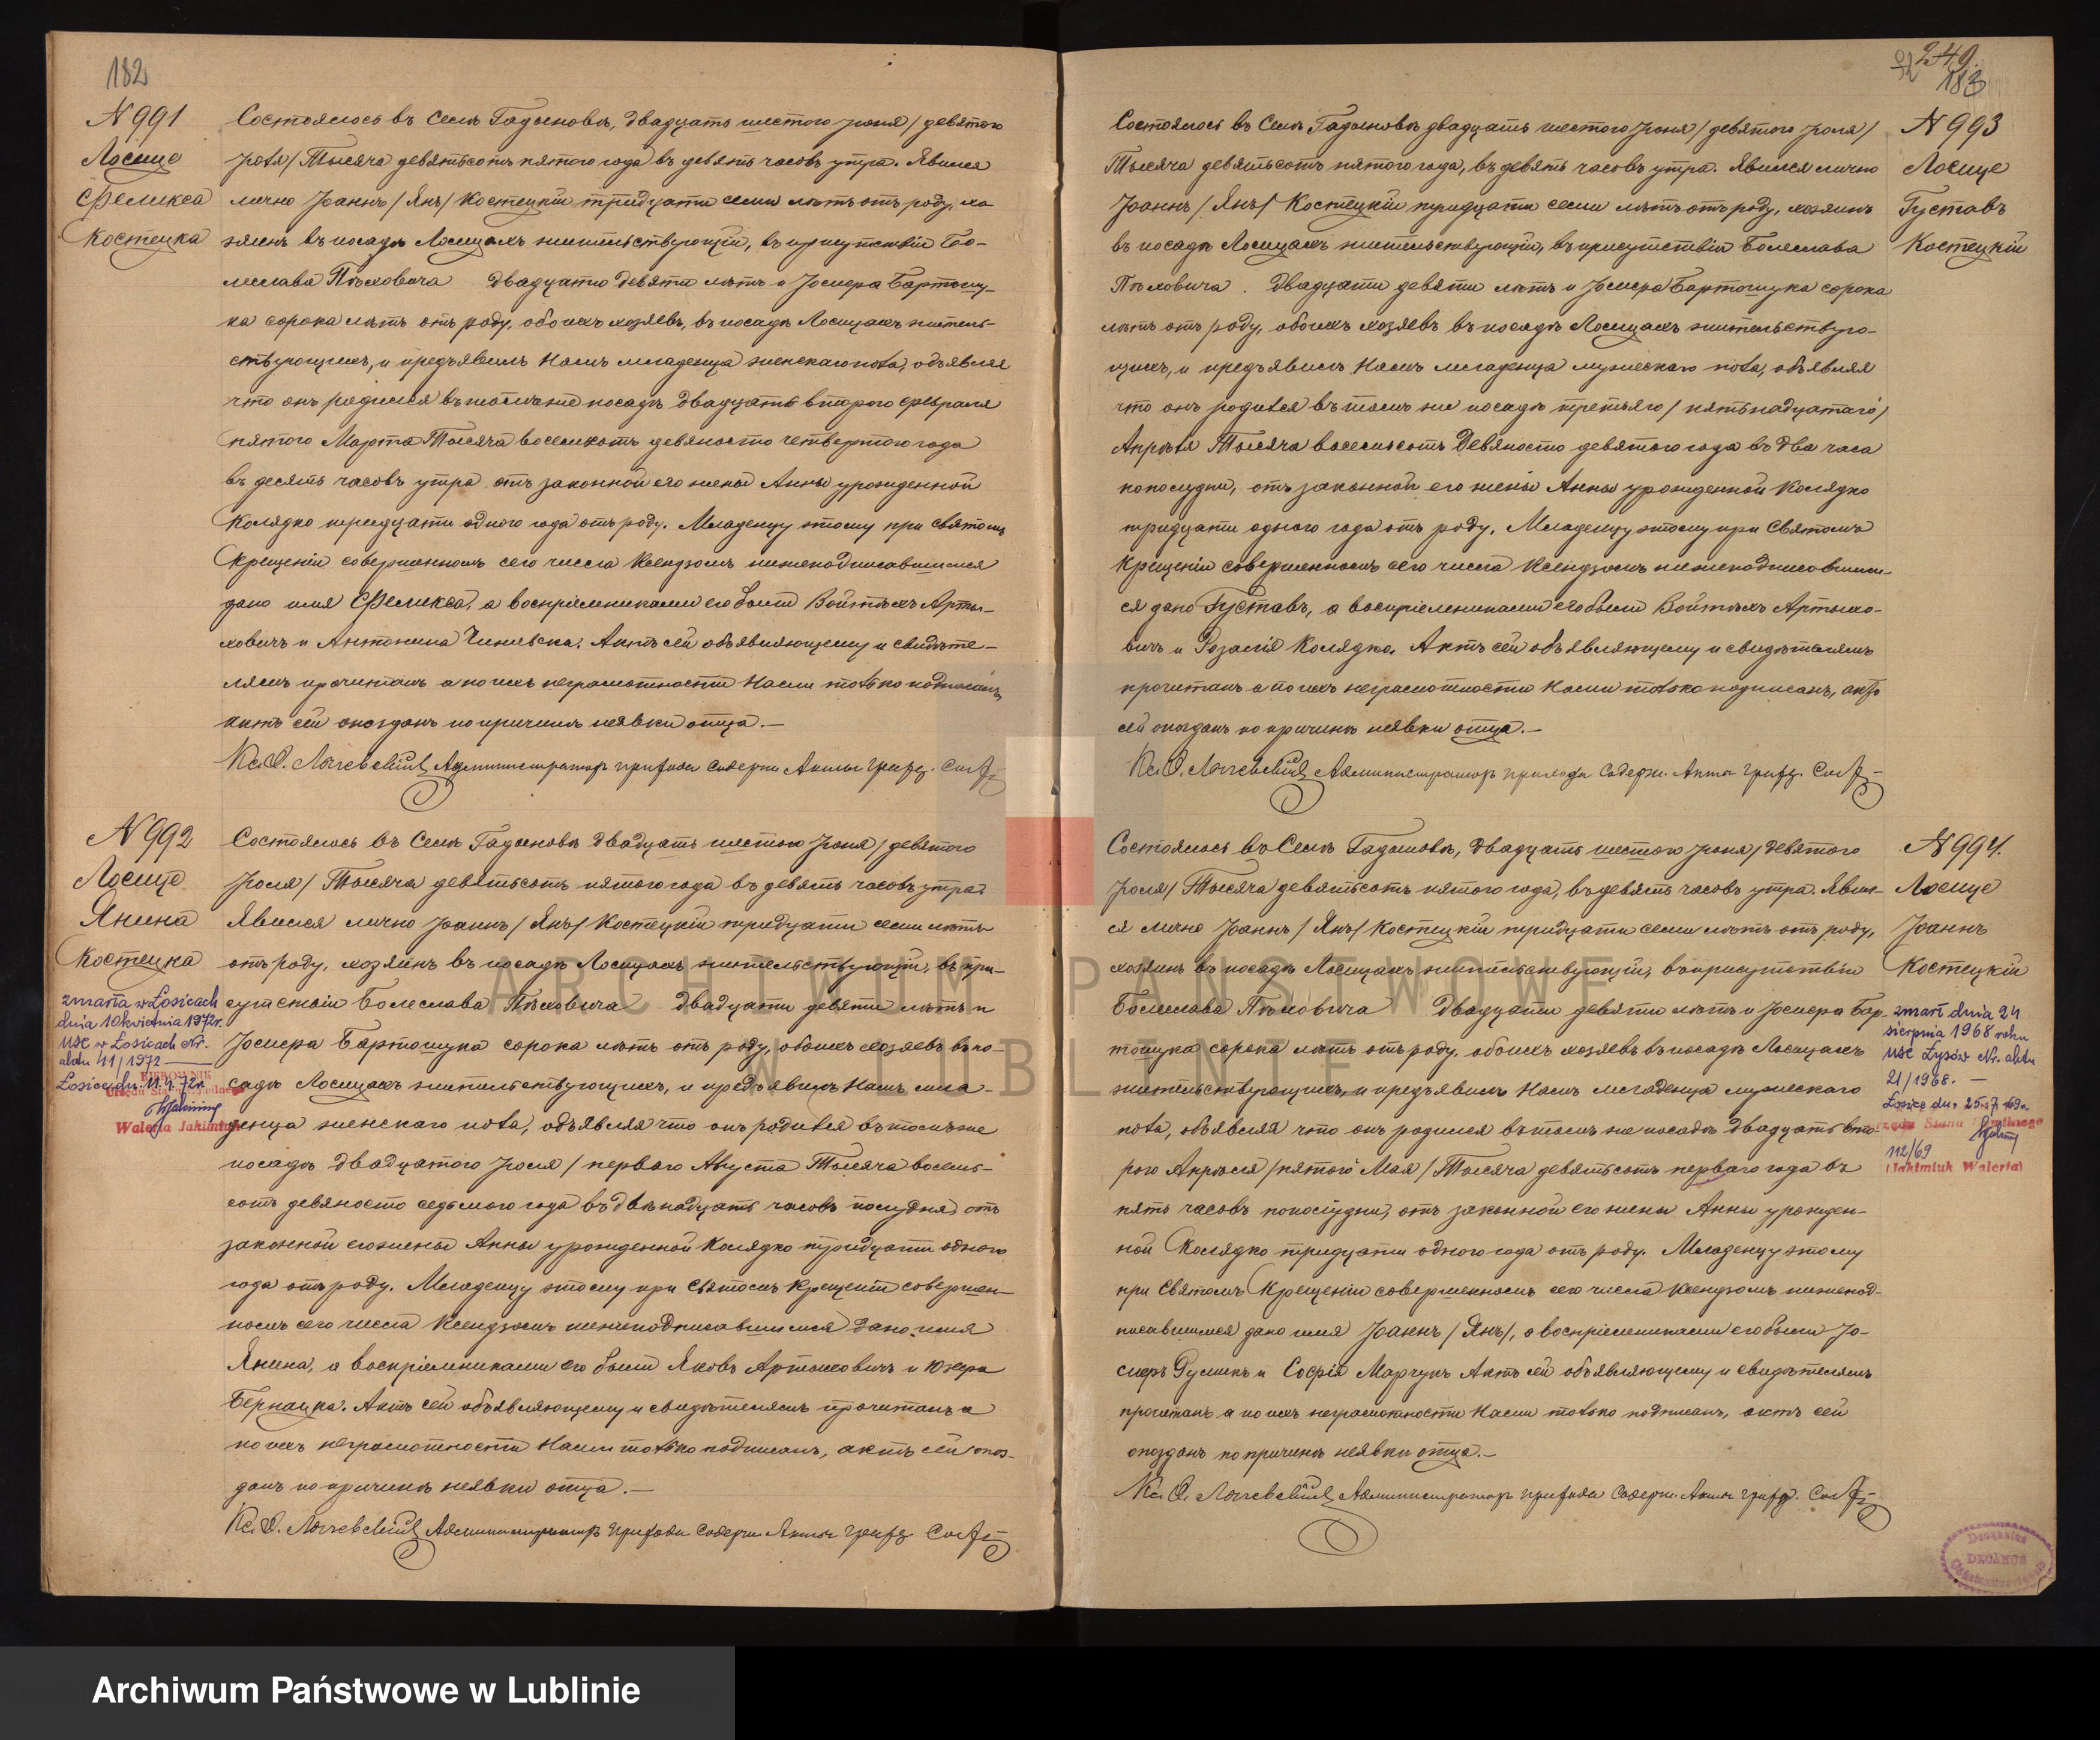 182
№ 991
Лосице
Феликса
Костецка
Состоялось въ Селѣ Гадыновѣ, двадцать шестого Іюня / девятого
Іюля / Тысяча девятьсотъ пятого года въ девять часовъ утра. Явился
лично Іоаннъ / Янъ / Костецкій тридцати семи лѣтъ отъ роду, хо-
зяинъ въ посадѣ Лосицахъ жительствующій, въ присутствіи Бо-
леслава Пѣховича двадцати девяти лѣтъ и Іосифа Бартошу-
ка сорока лѣтъ отъ роду, обоихъ хозяевъ, въ посадѣ Лосицахъ житель-
ствующихъ, и предъявилъ Намъ младенца женскаго пола, объявляя
что онъ родился въ томъ же посадѣ двадцать второго Февраля
пятого Марта Тысяча восемьсотъ девяносто четвертого года
въ десять часовъ утра отъ законной его жены Анны урожденной
Колядко тридцати одного года отъ роду. Младенцу этому при Святомъ
Крещеніи совершенномъ сего числа Ксендзомъ нижеподписавшимся
дано имя Феликса, а воспріемниками его были Войтѣхъ Арты-
ховичъ и Антонина Чинявска. Актъ сей объявляющему и свидѣте-
лямъ прочитанъ а по ихъ неграмотности Нами только подписанъ,
актъ сей опозданъ по причинѣ неявки отца.—
Кс. О. Администраторъ прихода Содерж. Акты Гражд. Сост.
№ 992
Лосице
Янина
Костецка
zmarła w Łosicach
dnia 10 kwietnia 1972 r.
USC w Łosicach Nr.
aktu 41/1972 —
Łosice, dn. 11.4.72 r.
KIEROWNIK
Urzędu Stanu Cywilnego
Waleria Jakimiuk
Состоялось въ Селѣ Гадыновѣ двадцать шестого Іюня / девятого
Іюля / Тысяча девятьсотъ пятого года въ девять часовъ утра.
Явился лично Іоаннъ / Янъ / Костецкій тридцати семи лѣтъ
отъ роду, хозяинъ въ посадѣ Лосицахъ жительствующій, въ при-
сутствіи Болеслава Пѣховича двадцати девяти лѣтъ и
Іосифа Бартошука сорока лѣтъ отъ роду, обоихъ хозяевъ въ по-
садѣ Лосицахъ жительствующихъ, и предъявилъ Намъ мла-
денца женскаго пола, объявляя что онъ родился въ томъ же
посадѣ двадцатого Іюля / первого Августа Тысяча восемь-
сотъ девяносто седьмого года въ двѣнадцать часовъ полудня, отъ
законной его жены Анны урожденной Колядко тридцати одного
года отъ роду. Младенцу этому при Святомъ Крещеніи совершен-
номъ сего числа Ксендзомъ нижеподписавшимся дано имя
Янина, а воспріемниками его были Яковъ Артыховичъ и Юзефа
Бернацка. Актъ сей объявляющему и свидѣтелямъ прочитанъ а
по ихъ неграмотности Нами только подписанъ, актъ сей опоз-
данъ по причинѣ неявки отца.—
Кс. О. Администраторъ прихода Содерж. Акты Гражд. Сост.
249.
183
№ 993
Лосице
Густавъ
Костецкій
Состоялось въ Селѣ Гадыновѣ двадцать шестого Іюня / девятого Іюля /
Тысяча девятьсотъ пятого года, въ девять часовъ утра. Явился лично
Іоаннъ / Янъ / Костецкій тридцати семи лѣтъ отъ роду, хозяинъ
въ посадѣ Лосицахъ жительствующій, въ присутствіи Болеслава
Пѣховича. двадцати девяти лѣтъ и Іосифа Бартошука сорока
лѣтъ отъ роду, обоихъ хозяевъ въ посадѣ Лосицахъ жительствую-
щихъ, и предъявилъ Намъ младенца мужескаго пола, объявляя
что онъ родился въ томъ же посадѣ третьяго / пятьнадцатаго /
Апрѣля Тысяча восемьсотъ девяносто девятого года въ два часа
пополудни, отъ законной его жены Анны урожденной Колядко
тридцати одного года отъ роду. Младенцу этому при Святомъ
Крещеніи совершенномъ сего числа Ксендзомъ нижеподписавшим-
ся дано Густавъ, а воспріемниками его были Войтѣхъ Артыхо-
вичъ и Розалія Колядко. Актъ сей объявляющему и свидѣтелямъ
прочитанъ а по ихъ неграмотности Нами только подписанъ, актъ
сей опозданъ по причинѣ неявки отца.—
Кс. О. Администраторъ прихода Содерж. Акты Гражд. Сост.
№ 994.
Лосице
Іоаннъ
Костецкій
zmarł dnia 24
sierpnia 1968 roku
USC Łysów Nr. aktu
21/1968. —
Łosice dn. 25.7.69 r.
Urzędu Stanu Cywilnego
112/69
(Jakimiuk Waleria)
Состоялось въ Селѣ Гадыновѣ, двадцать шестого Іюня / девятого
Іюля / Тысяча девятьсотъ пятого года, въ девять часовъ утра. Явил-
ся лично Іоаннъ / Янъ / Костецкій тридцати семи лѣтъ отъ роду,
хозяинъ въ посадѣ Лосицахъ жительствующій, въ присутствіи
Болеслава Пѣховича двадцати девяти лѣтъ и Іосифа Бар-
тошука сорока лѣтъ отъ роду, обоихъ хозяевъ въ посадѣ Лосицахъ
жительствующихъ, и предъявилъ Намъ младенца мужескаго
пола, объявляя что онъ родился въ томъ же посадѣ двадцать вто-
рого Апрѣля / пятого Мая / Тысяча девятьсотъ первого года въ
пять часовъ пополудни, отъ законной его жены Анны урожден-
ной Колядко тридцати одного года отъ роду. Младенцу этому
при Святомъ Крещеніи совершенномъ сего числа Ксендзомъ нижепод-
писавшимся дано имя Іоаннъ / Янъ /, а воспріемниками его были Іо-
сифъ Румикъ и Софія Марчукъ Актъ сей объявляющему и свидѣтелямъ
прочитанъ а по ихъ неграмотности Нами только подписанъ, актъ сей
опозданъ по причинѣ неявки отца.—
Кс. О. Администраторъ прихода Содерж. Акты Гражд. Сост.
DECANUS
ARCHIWUM PAŃSTWOWE
W LUBLINIE
Archiwum Państwowe w Lublinie